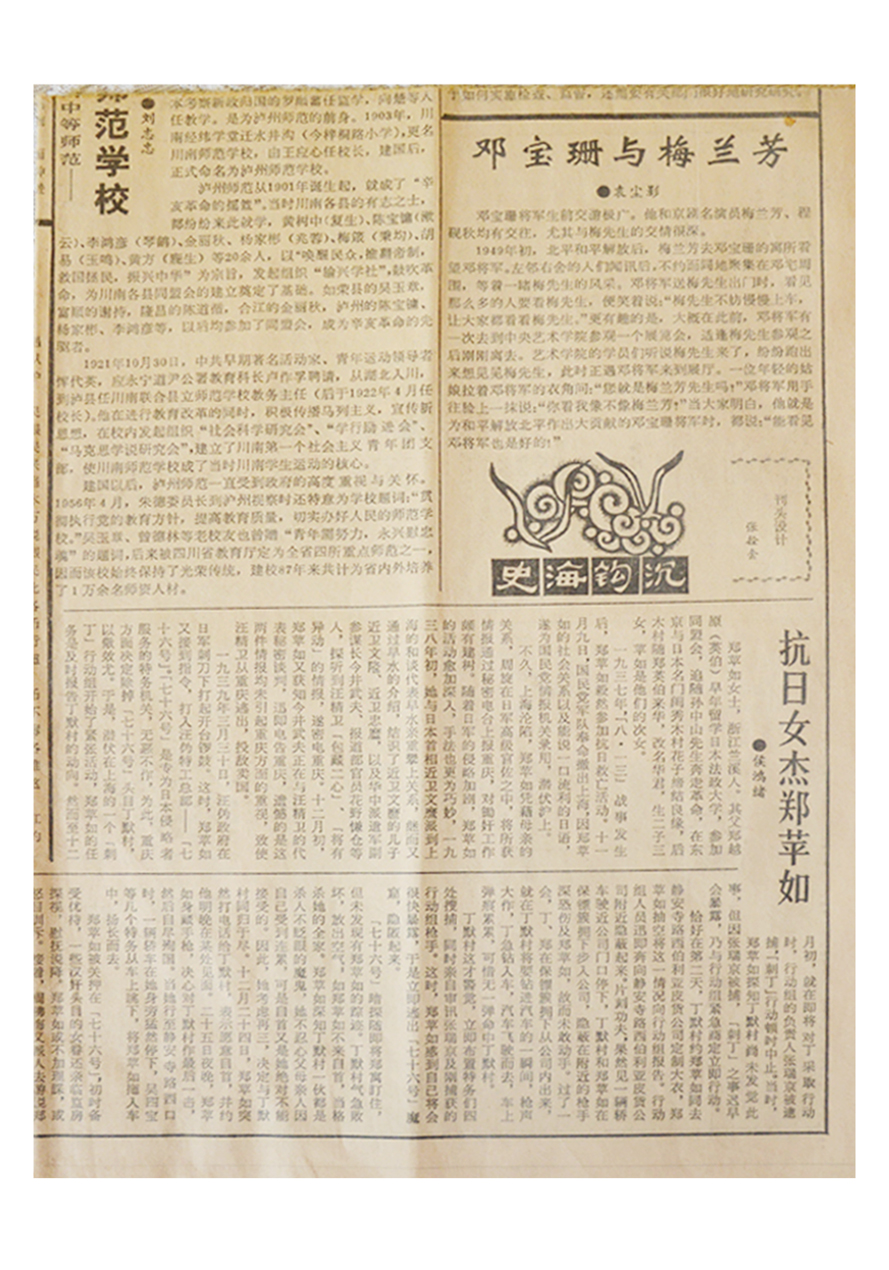 师范学校
中等师范——
●刘志忠
任教学。是为泸州师范的前身。1903年，川
南经纬学堂迁水井沟（今梓桐路小学），更名
川南师范学校，由王应心任校长，建国后，
正式命名为泸州师范学校。
泸州师范从1901年诞生起，就成了“辛
亥革命的摇篮”。当时川南各县的有志之士，
都纷纷来此就学，黄树中（复生）、陈宝镛（漱
云）、李鸿彦（琴鹤）、金丽秋、杨家彬（兆蓉）、梅箴（秉均）、胡
易（玉鸣）、黄方（鹿生）等20余人，以“唤醒民众，推翻帝制，
救国拯民，振兴中华”为宗旨，发起组织“输兴学社”，鼓吹革
命，为川南各县同盟会的建立奠定了基础。如荣县的吴玉章，
富顺的谢持，隆昌的陈道循，合江的金丽秋，泸州的陈宝镛、
杨家彬、李鸿彦等，以后均参加了同盟会，成为辛亥革命的先
驱者。
1921年10月30日，中共早期著名活动家、青年运动领导者
恽代英，应永宁道尹公署教育科长卢作孚聘请，从湖北入川，
到泸县任川南联合县立师范学校教务主任（后于1922年4月任
校长）。他在进行教育改革的同时，积极传播马列主义，宣传新
思想，在校内发起组织“社会科学研究会”、“学行励进会”、
“马克思学说研究会”，建立了川南第一个社会主义青年团支
部，使川南师范学校成了当时川南学生运动的核心。
建国以后，泸州师范一直受到政府的高度重视与关怀。
1956年4月，朱德委员长到泸州视察时还特意为学校题词：“贯
彻执行党的教育方针，提高教育质量，切实办好人民的师范学
校。”吴玉章、曾德林等老校友也曾赠“青年需努力，永兴慰忠
魂”的题词，后来被四川省教育厅定为全省四所重点师范之一，
因而该校始终保持了光荣传统，建校87年来共计为省内外培养
了1万余名师资人材。
邓宝珊与梅兰芳
●袁尘影
邓宝珊将军生前交游极广。他和京剧名演员梅兰芳、程
砚秋均有交往，尤其与梅先生的交情很深。
1949年初，北平和平解放后，梅兰芳去邓宝珊的寓所看
望邓将军。左邻右舍的人们闻讯后，不约而同地聚集在邓宅周
围，等着一睹梅先生的风采。邓将军送梅先生出门时，看见
那么多的人要看梅先生，便笑着说：“梅先生不妨慢慢上车，
让大家都看看梅先生。”更有趣的是，大概在此前，邓将军有
一次去到中央艺术学院参观一个展览会，适逢梅先生参观之
后刚刚离去。艺术学院的学员们听说梅先生来了，纷纷跑出
来想见见梅先生，此时正遇邓将军来到展厅。一位年轻的姑
娘拉着邓将军的衣角问：“您就是梅兰芳先生吗？”邓将军用手
往脸上一抹说：“你看我像不像梅兰芳？”当大家明白，他就是
为和平解放北平作出大贡献的邓宝珊将军时，都说：“能看见
邓将军也是好的！”
史海钩沉
刊头设计
抗日女杰郑苹如
●侯鸿绪
郑苹如女士，浙江兰溪人。其父郑越
原（英伯）早年留学日本法政大学，参加
同盟会，追随孙中山先生奔走革命，在东
京与日本名门闺秀木村花子缔结良缘，后
木村随郑英伯来华，改名华君，生二子三
女，苹如是他们的次女。
一九三七年“八·一三”战事发生
后，郑苹如毅然参加抗日救亡活动。十一
月九日，国民党军队奉命撤出上海，因郑苹
如的社会关系以及能说一口流利的日语，
遂为国民党情报机关录用，潜伏沪上。
不久，上海沦陷，郑苹如凭藉母亲的
关系，周旋在日军高级官佐之中，将所获
情报通过秘密电台上报重庆，对锄奸工作
颇有建树。随着日军的侵略加剧，郑苹如
的活动愈加深入，手法也更为巧妙，一九
三八年初，她与日本首相近卫文麿派到上
海的和谈代表早水亲重攀上关系，继而又
通过早水的介绍，结识了近卫文麿的儿子
近卫文隆、近卫忠麿，以及华中派遣军副
参谋长今井武夫、报道部官员花野慊仓等
人，探听到汪精卫「包藏二心」、「将有
异动」的情报，遂密电重庆。十二月初，
郑苹如又获知今井武夫正在与汪精卫的代
表秘密谈判，迅即电告重庆，遗憾的是这
两件情报均未引起重庆方面的重视，致使
汪精卫从重庆逃出，投敌卖国。
一九三九年三月三十日，汪伪政府在
日军刺刀下打起开台锣鼓。这时，郑苹如
又接到指令，打入汪伪特工总部——「七
十六号」。「七十六号」是专为日本侵略者
服务的特务机关，无恶不作，为此，重庆
方面决定除掉「七十六号」头目丁默村，
以儆效尤。于是，潜伏在上海的一个「刺
丁」行动组开始了紧张活动，郑苹如的任
务是及时报告丁默村的动向。然而至十二
月初，就在即将对丁采取行动
时，行动组的负责人张瑞京被逮
捕，「刺丁」行动顿时中止。当时，
郑苹如探知丁默村尚未发觉此
事，但因张瑞京被捕，「刺丁」之事迟早
会暴露，乃与行动组紧急商定立即行动。
恰好在第二天，丁默村约郑苹如同去
静安寺路西伯利亚皮货公司定制大衣，郑
苹如抽空将这一情况向行动组报告。行动
组人员迅即奔向静安寺路西伯利亚皮货公
司附近隐蔽起来。片刻功夫，果然见一辆轿
车驶近公司门口停下，丁默村和郑苹如在
保镖簇拥下步入公司，隐蔽在附近的枪手
深恐伤及郑苹如，故而未敢动手。过了一
会，丁、郑在保镖簇拥下从公司内出来，
就在丁默村将要钻进汽车的一瞬间，枪声
大作，丁急钻入车，汽车飞驶而去，车上
弹痕累累，可惜无一弹命中丁默村。
丁默村这才警觉，立即布置特务们四
处搜捕，同时亲自审讯张瑞京及刚捕获的
行动组枪手。这时，郑苹如感到自己将会
很快暴露，于是立即逃出「七十六号」魔
窟，隐匿起来。
「七十六号」暗探随即将郑寓盯住，
但未发现有郑苹如的踪迹。丁默村气急败
坏，放出空气，如郑苹如不来自首，当格
杀她的全家。郑苹如深知丁默村一伙都是
杀人不眨眼的魔鬼，她不忍心父母亲人因
自己受到连累，可是自首又是她绝对不能
接受的。因此，她考虑再三，决定与丁默
村同归于尽。十二月二十四日，郑苹如突
然打电话给丁默村，表示愿意自首，并约
他明晚在某处见面。二十五日夜晚，郑苹
如身藏手枪，决心对丁默村作最后一击，
然后自早殉国。当她行至静安寺路西口
时，一辆轿车在她身旁猛然停下，吴四宝
等几个特务从车上跳下，将郑苹如拖入车
中，扬长而去。
郑苹如被关押在「七十六号」，初时备
受优待，一些汉奸头目的女眷还亲临监房
探视，慰抚说降，郑苹如或不加理睬，或